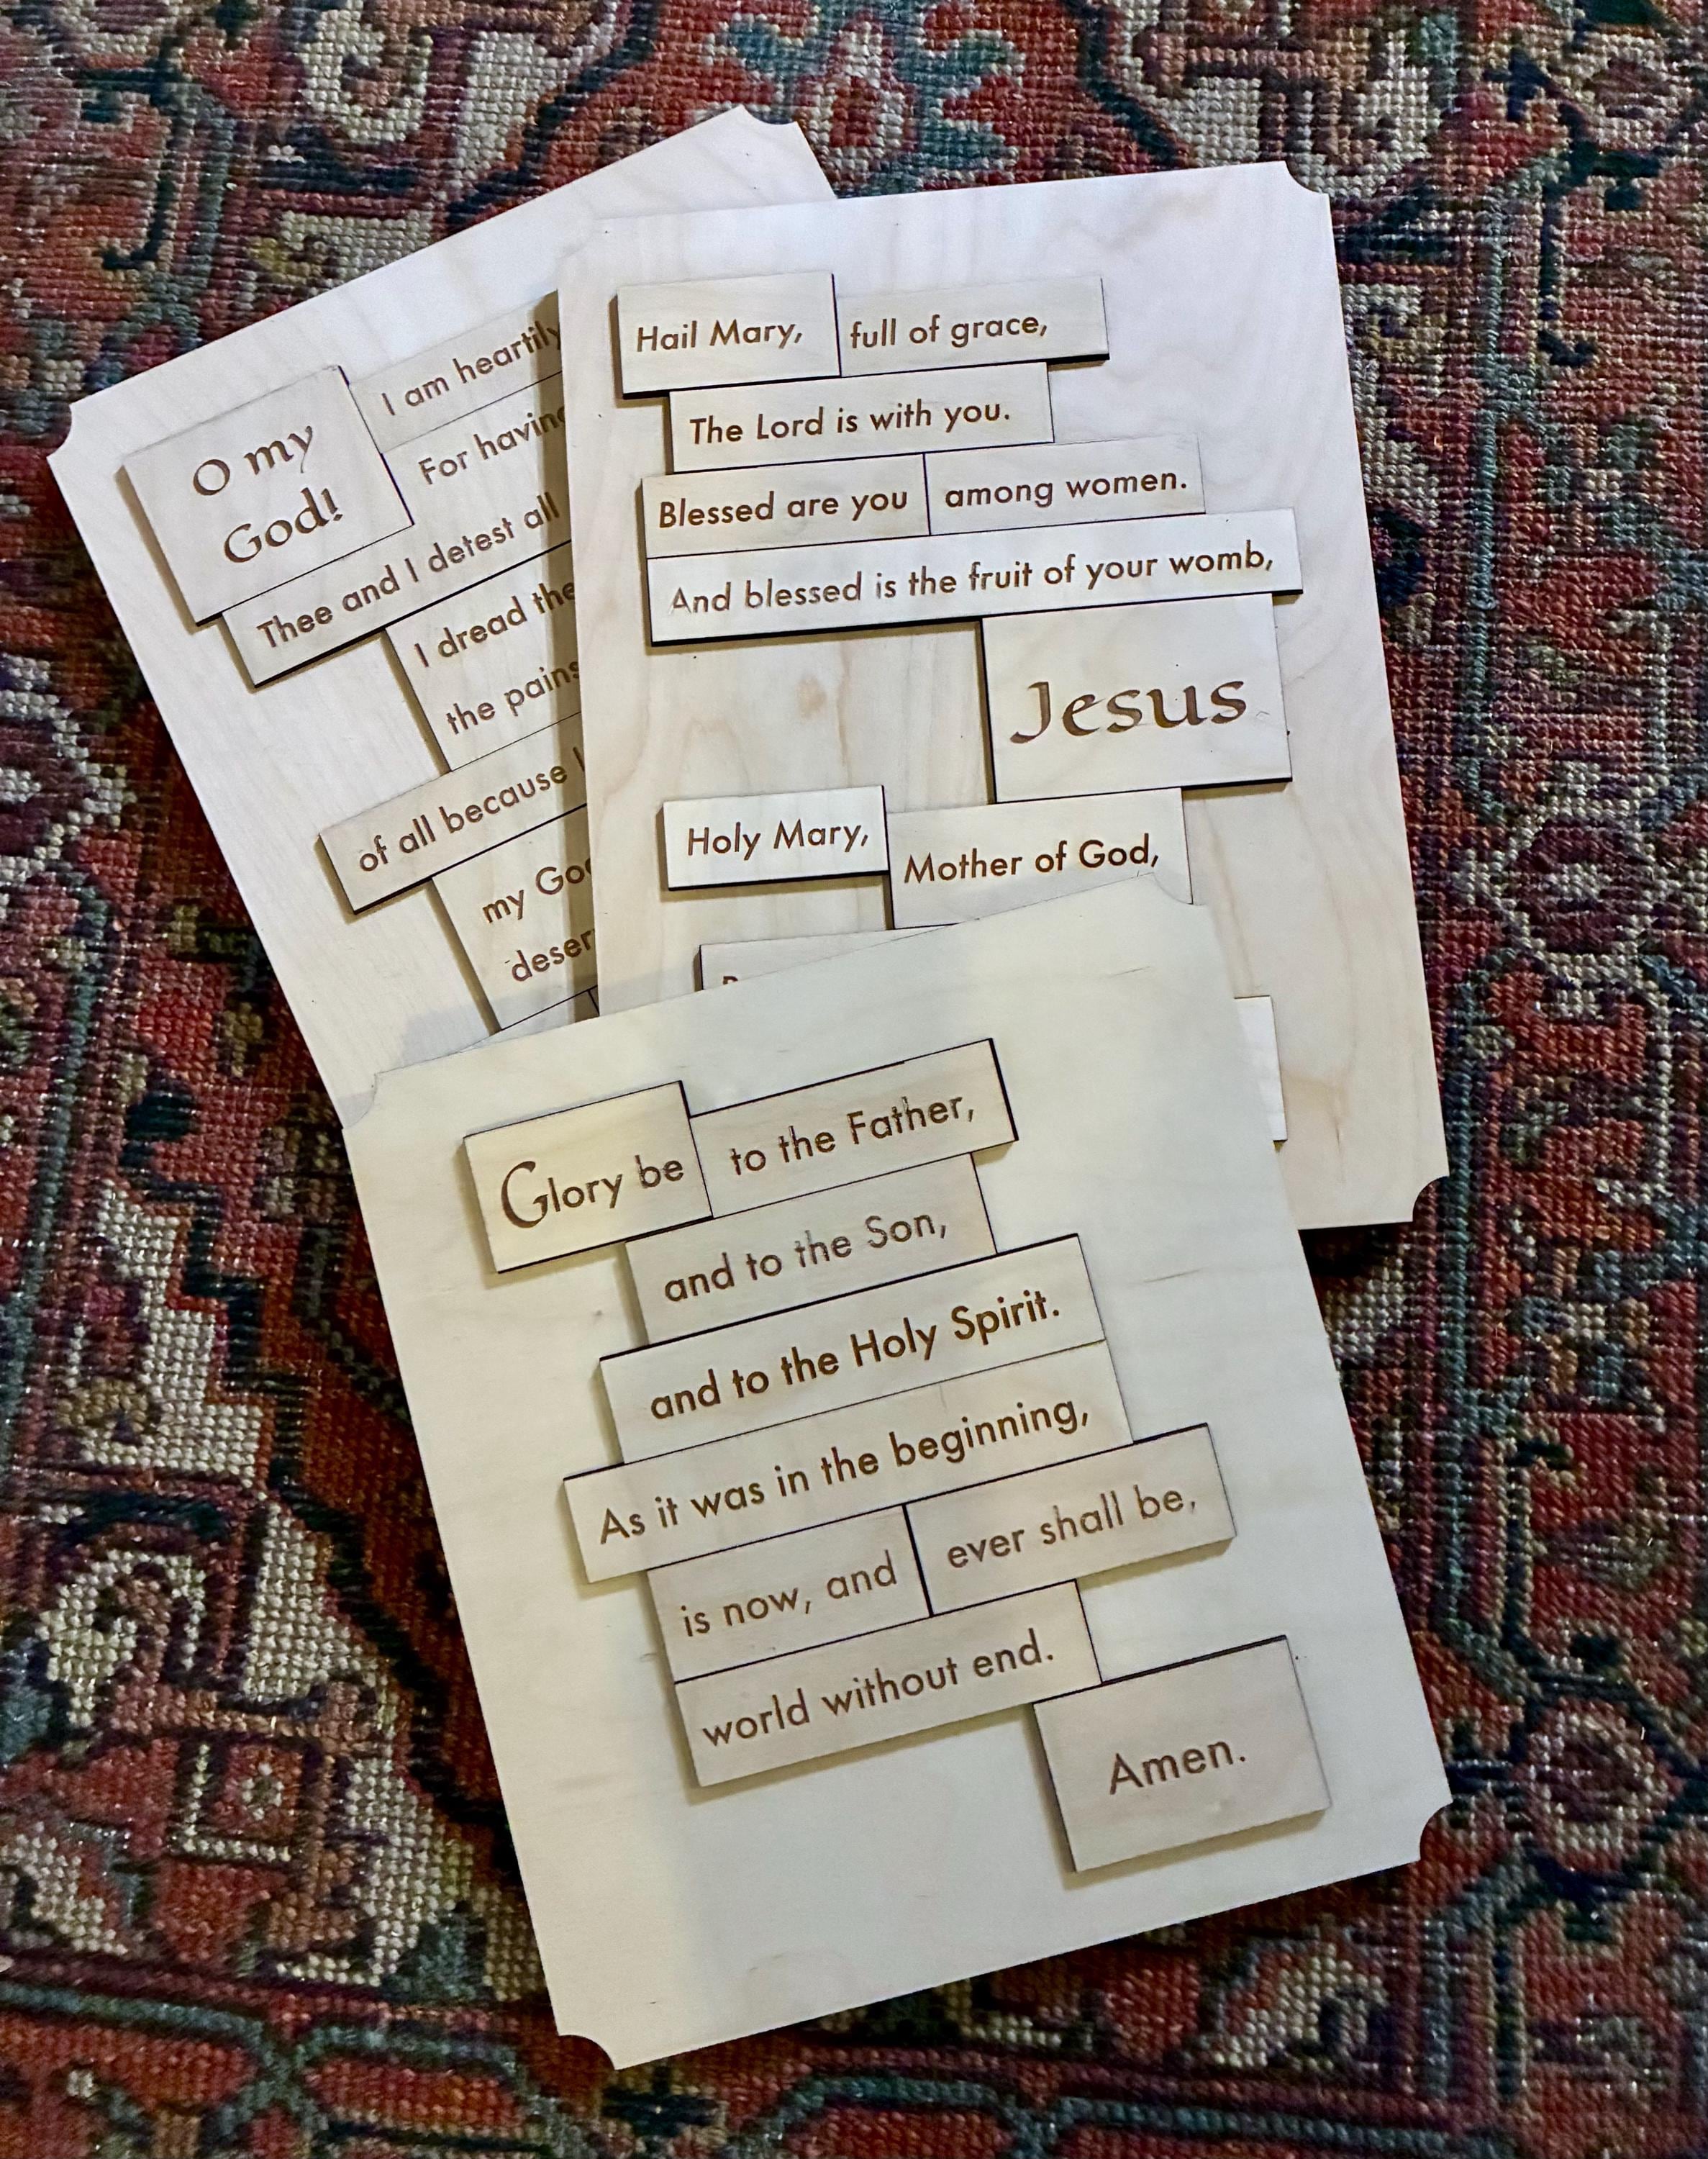 O my
God!
I am heartily
For having
Thee and I detest all
I dread the
the pains
of all because I
my God
Hail Mary, full of grace,
The Lord is with you.
Blessed are you among women.
And blessed is the fruit of your womb,
Jesus
Holy Mary, Mother of God,
Glory be to the Father,
and to the Son,
and to the Holy Spirit.
As it was in the beginning,
is now, and ever shall be,
world without end.
Amen.